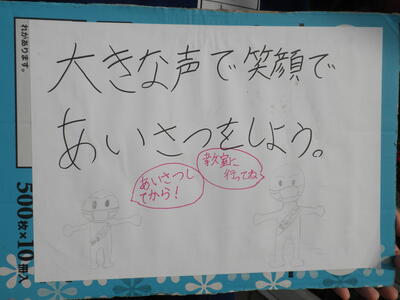 大きな声で笑顔で
あいさつをしよう。
あいさつし
てから！
教室に
行ってね
れがあります。
500枚×10冊入